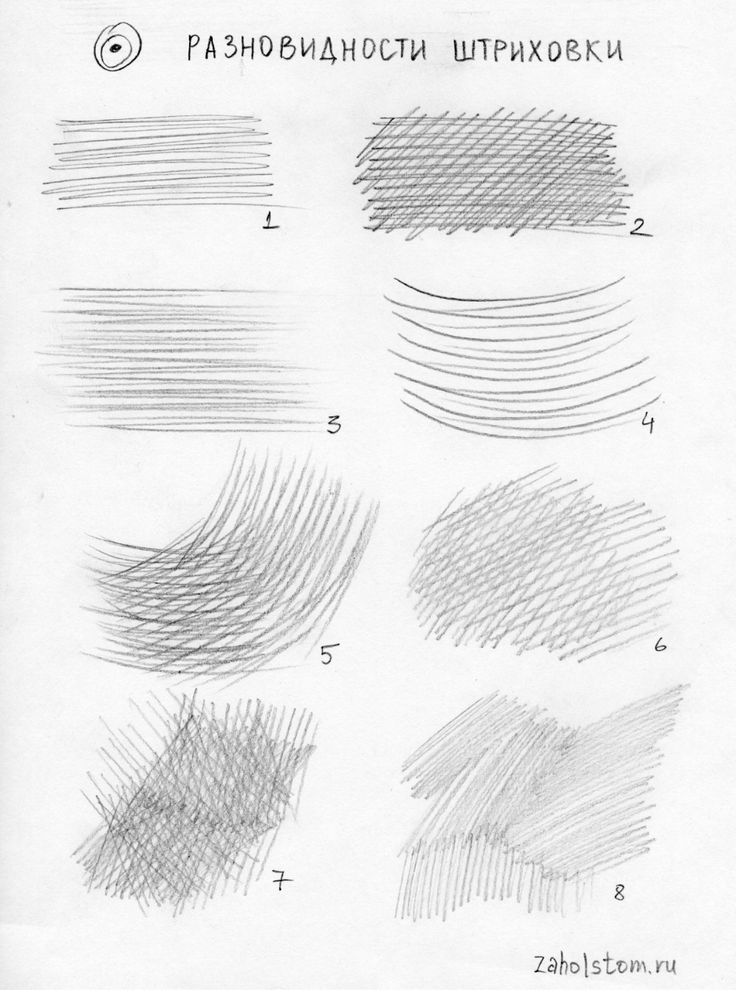 РАЗНОВИДНОСТИ ШТРИХОВКИ
1
2
3
4
5
6
7
8
zaholstom.ru